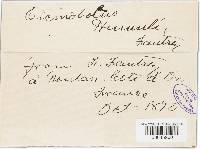 Cicinobolus
Humuli
Fautrey
from F. Fautrey
à Noidan, Côte d'Or
France
Oct. 1890